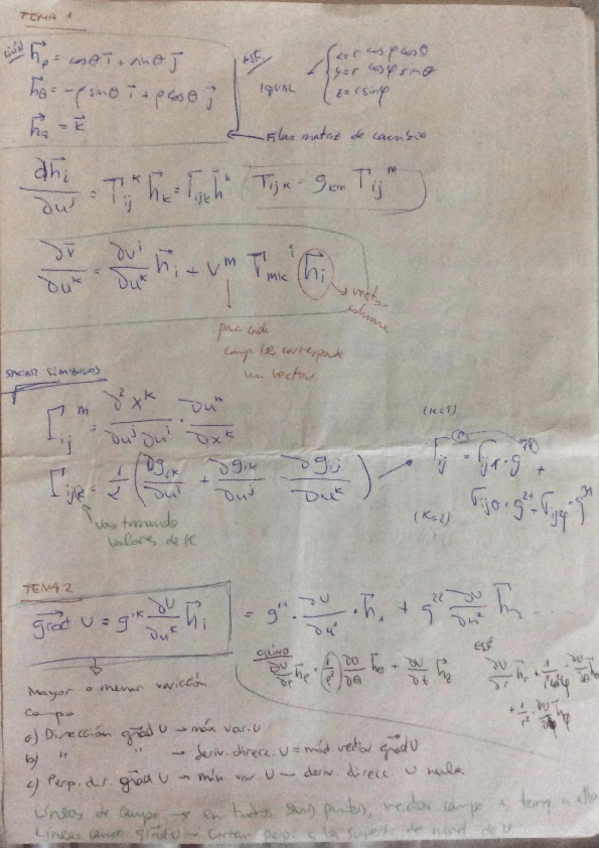 TEMA 1
CILÍND h⃗ρ = cosθ i⃗ + sinθ j⃗
h⃗θ = -ρ sinθ i⃗ + ρ cosθ j⃗
h⃗z = k⃗
ESF. IGUAL
x = r cosφ cosθ
y = r cosφ sinθ
z = r sinφ
Filas matriz de cambio
∂h⃗i/∂u^j = Γij^k h⃗k = Γijk h⃗^k Γijk = gkm Γij^m
∂v⃗/∂u^k = ∂v^i/∂u^k h⃗i + v^m Γmk^i h⃗i
vector
para cada
comp. les corresponde
un vector
SACAR SÍMBOLOS
Γij^m = ∂²x^k/∂u^j∂u^i · ∂u^m/∂x^k
(k=1)
Γijk = 1/2 (∂gjk/∂u^i + ∂gik/∂u^j - ∂gij/∂u^k)
Γij = Γij1 · g +
Γijθ · g^21 + Γijφ · g^31
(k=2)
Vas tomando
valores de k
TEMA 2
grad U = g^ik ∂U/∂u^k h⃗i = g^11 · ∂U/∂u^1 · h⃗1 + g^22 ∂U/∂u^2 h⃗2
CILIND
∂U/∂r h⃗r + (1/r²) ∂U/∂θ h⃗θ + ∂U/∂z h⃗z
ESF
∂U/∂r h⃗r +
Mayor o menor variación
campo
a) Dirección grad U → máx var. U
b) " " → deriv. direcc. U = mód. vector grad U
c) Perp. dir. grad U → mín var. U → deriv. direcc. U nula
Líneas de campo → en todos sus puntos, vector campo es tang. a ella
Líneas campo grad U → cortan perp. a la superf. de nivel de U